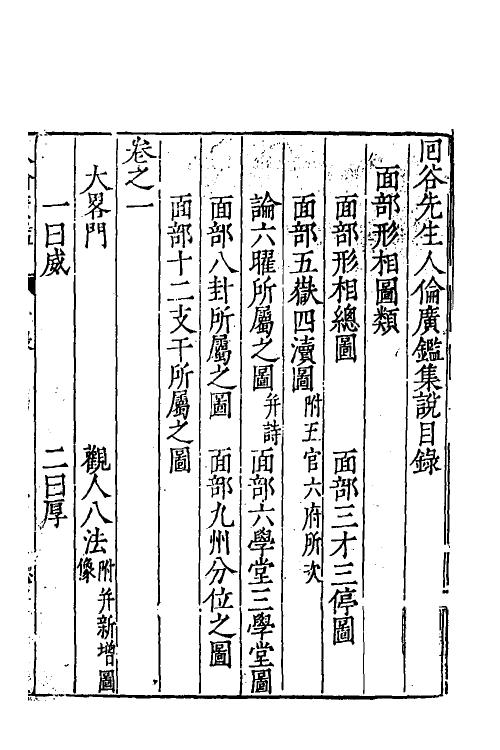 囘谷先生人倫廣鑑集說目錄
面部形相圖類
面部形相總圖　面部三才三停圖
面部五嶽四瀆圖附五官六府所次
論六曜所屬之圖并詩　面部六學堂三學堂圖
面部八卦所屬之圖　面部九州分位之圖
面部十二支干所屬之圖
卷之一
大畧門　觀人八法附并新增圖像
一曰威　二曰厚